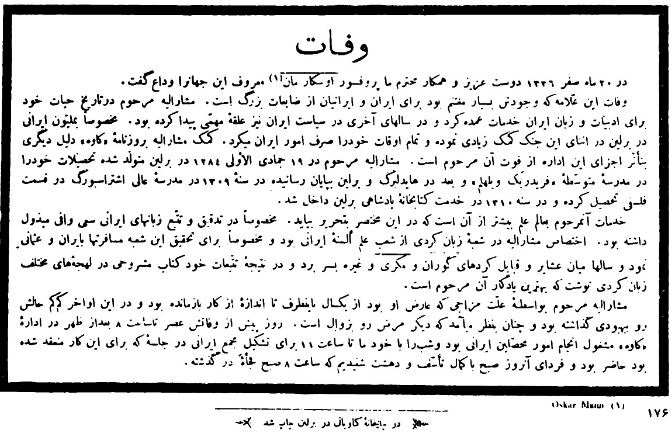 وفات
در ۲۰ ماه صفر ۱۳۳۶ دوست عزیز و همکار محترم ما پروفسور اوسکار مان (۱) معروف این جهانرا وداع گفت.
وفات این علّامه که وجودش بسیار مغتنم بود برای ایران و ایرانیان از ضایعات بزرگ است. مشارالیه مرحوم در تاریخ حیات خود
برای ادبیات و زبان ایران خدمات عمده کرد و در سالهای آخری در سیاست ایران نیز علقهٔ مهمّی پیدا کرده بود. مخصوصاً بملّیون ایرانی
در برلین در اثنای این جنگ کمک زیادی نموده و تمام اوقات خودرا صرف امور ایران میکرد. کمک مشارالیه بروزنامهٔ «کاوه» دلیل دیگری
بتأثر اجزای این اداره از فوت آن مرحوم است. مشارالیه مرحوم در ۱۹ جمادی الأولی ۱۲۸۴ در برلین متولّد شده تحصیلات خودرا
در مدرسهٔ متوسّطهٔ «فریدریک ویلهلم» و بعد در هایدلبرگ و برلین بپایان رسانیده در سنهٔ ۱۳۰۹ در مدرسهٔ عالی اشتراسبورگ در قسمت
فلسفی تحصیل کرده و در سنه ۱۳۱۰ در خدمت کتابخانهٔ پادشاهی برلین داخل شد.
خدمات آنمرحوم بعالم علم بیشتر از آن است که در این مختصر بتحریر بیاید. مخصوصاً در تدقیق و تتبّع زبانهای ایرانی سعی وافی مبذول
داشته بود. اختصاص مشارالیه در شعبهٔ زبان کردی از شعب علم ألسنهٔ ایرانی بود و مخصوصاً برای تحقیق این شعبه مسافرتها بایران و عثمانی
نمود و سالها میان عشایر و قبایل کردهای گوران و مکری و غیره بسر برد و در نتیجهٔ تتبّعات خود کتاب مشروحی در لهجه‌های مختلف
زبان کردی نوشت که بهترین یادگار آن مرحوم است.
مشارالیه مرحوم بواسطهٔ علّت مزاجی که عارض او بود از یکسال باینطرف تا اندازهٔ از کار بازمانده بود و در این اواخر کم‌کم حالش
رو ببهبودی گذاشته بود و چنان بنظر میآمد که دیگر مرض رو بزوال است. روز پیش از وفاتش عصر تا ساعت ۸ بعد از ظهر در ادارهٔ
«کاوه» مشغول انجام امور محصّلین ایرانی بود و شب را با خود ما تا ساعت ۱۱ برای تشکیل مجمع ایرانی در جلسهٔ که برای این کار منعقد شده
بود حاضر بود و فردای آنروز صبح با کمال تأسّف و دهشت شنیدیم که ساعت ۸ صبح فجأةً در گذشته.
Oskar Mann (۱)
۱۷۶
در چاپخانهٔ کاویانی در برلین چاپ شد